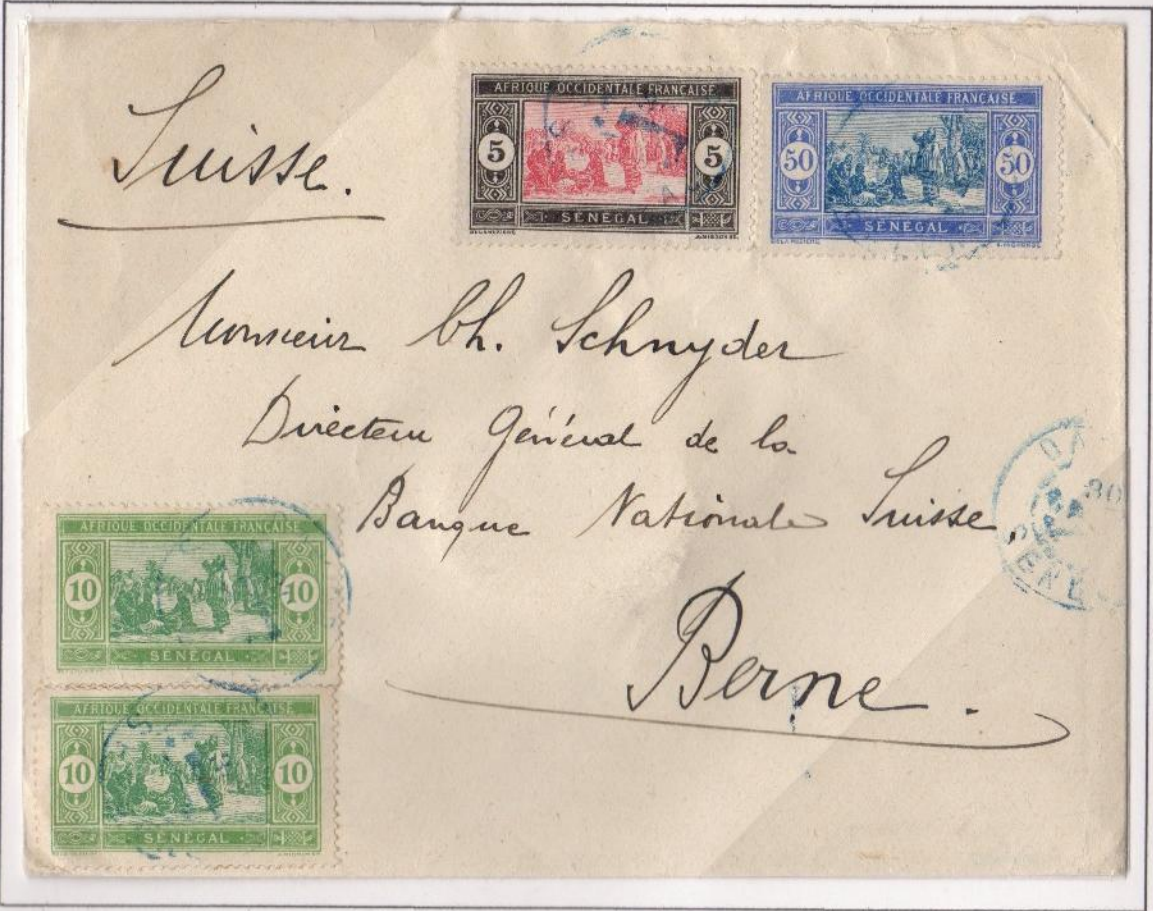 Suisse.
AFRIQUE OCCIDENTALE FRANÇAISE
5 5
SÉNÉGAL
AFRIQUE OCCIDENTALE FRANÇAISE
50 50
SÉNÉGAL
Monsieur Ch. Schnyder
Directeur Général de la
Banque Nationale Suisse
Berne.
AFRIQUE OCCIDENTALE FRANÇAISE
10 10
SÉNÉGAL
AFRIQUE OCCIDENTALE FRANÇAISE
10 10
SÉNÉGAL